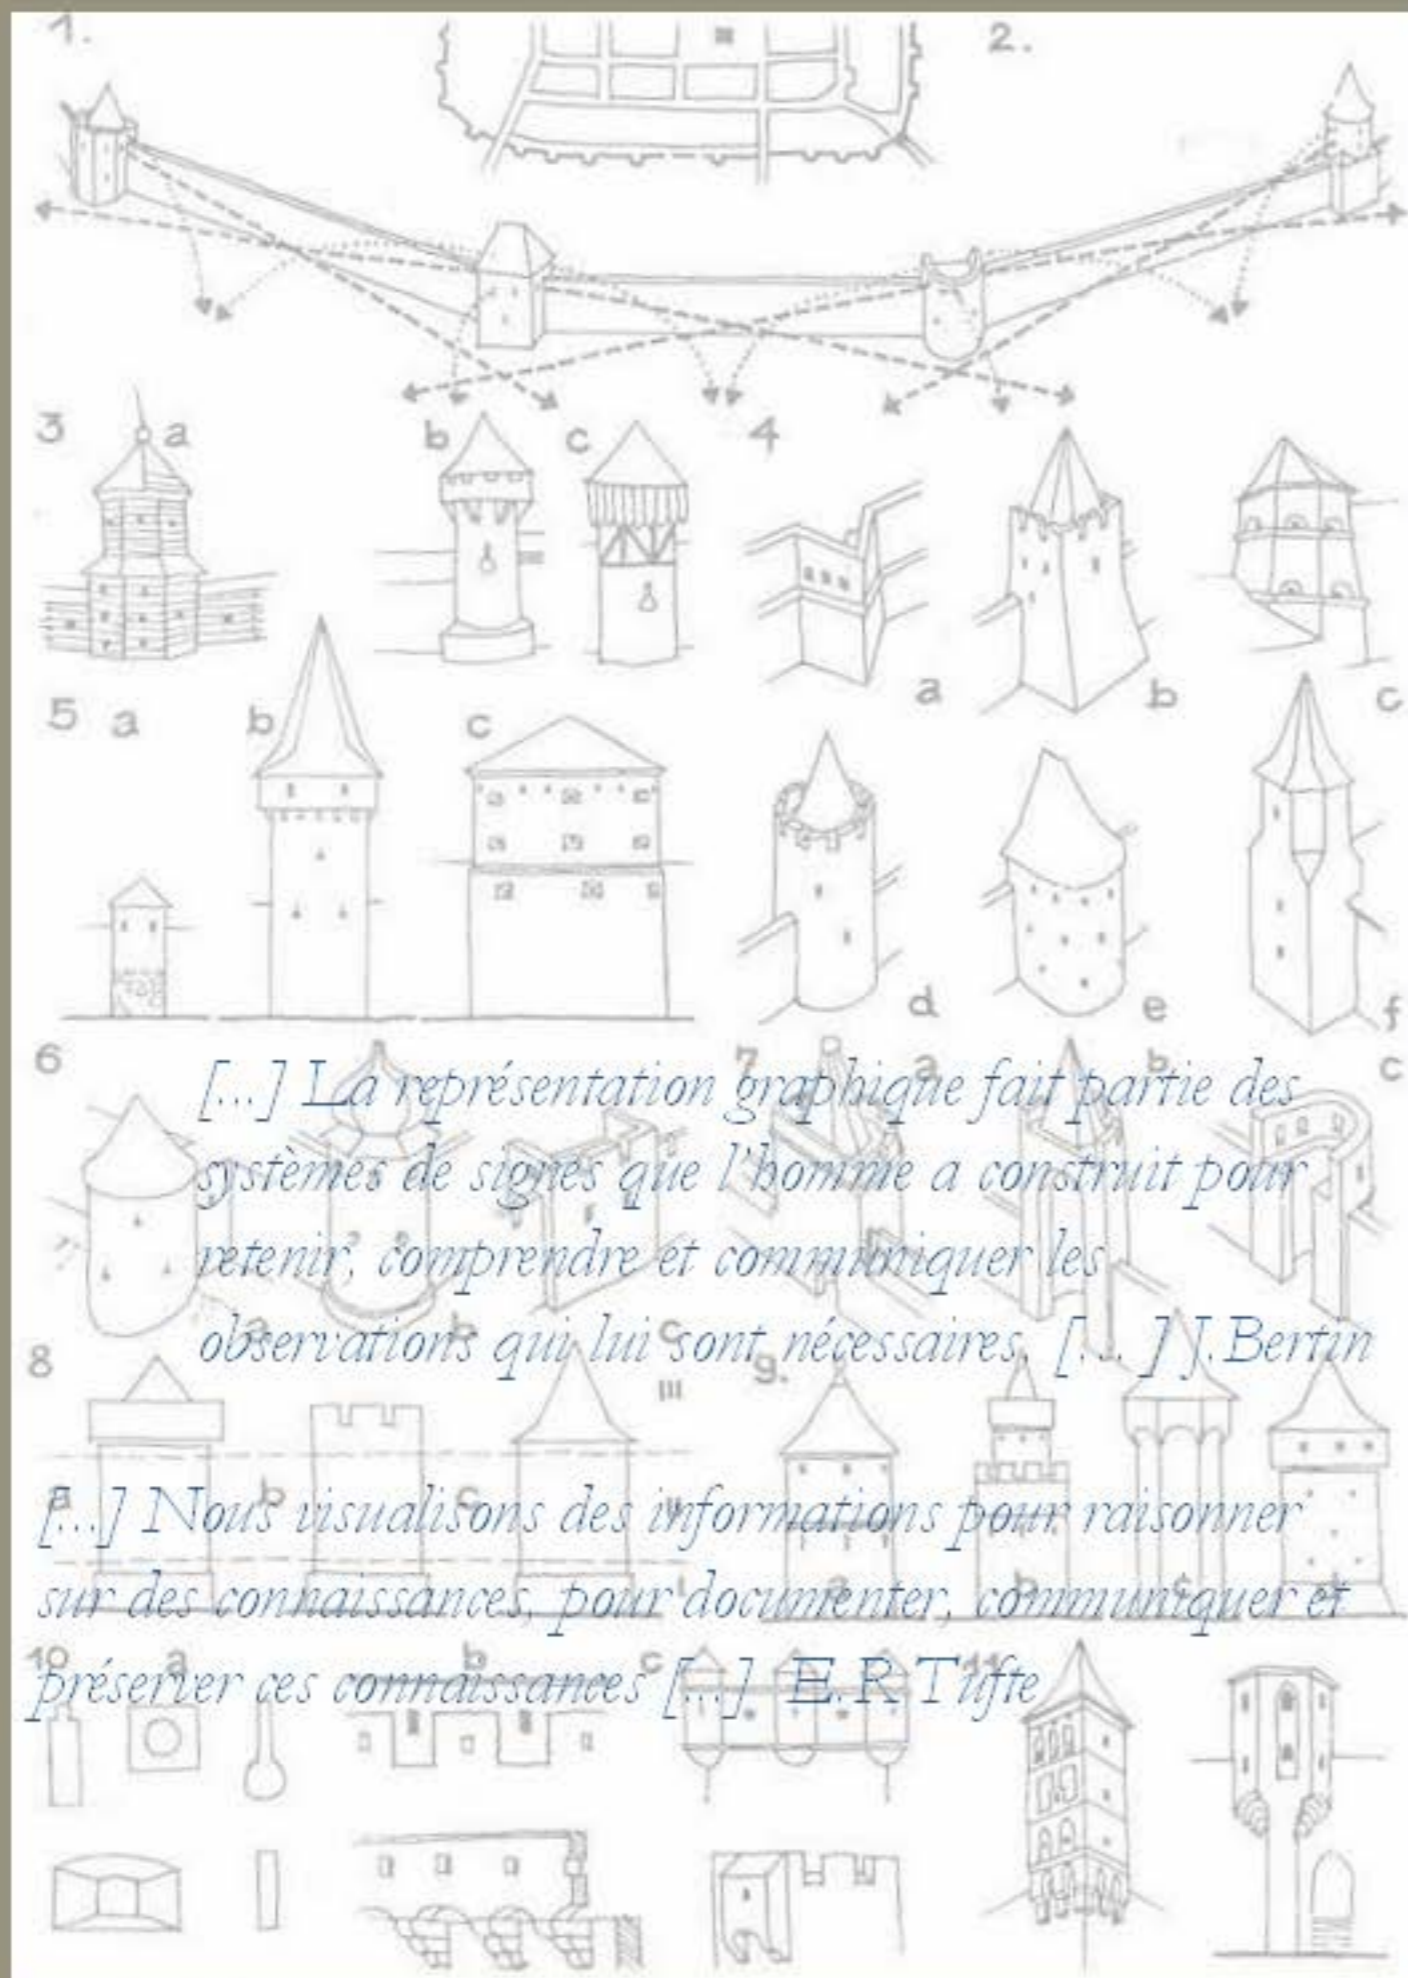 1.
2.
3 a b c 4
a b c
5 a b c
d e f
6 7 a b c
[...] La représentation graphique fait partie des
systèmes de signes que l'homme a construit pour
retenir, comprendre et communiquer les
a b c
observations qui lui sont nécessaires. [... ] J.Bertin
8 III 9.
a b c II
[...] Nous visualisons des informations pour raisonner
a b c d
sur des connaissances, pour documenter, communiquer et
10 a b c 11
préserver ces connaissances [...] E.R Tufte